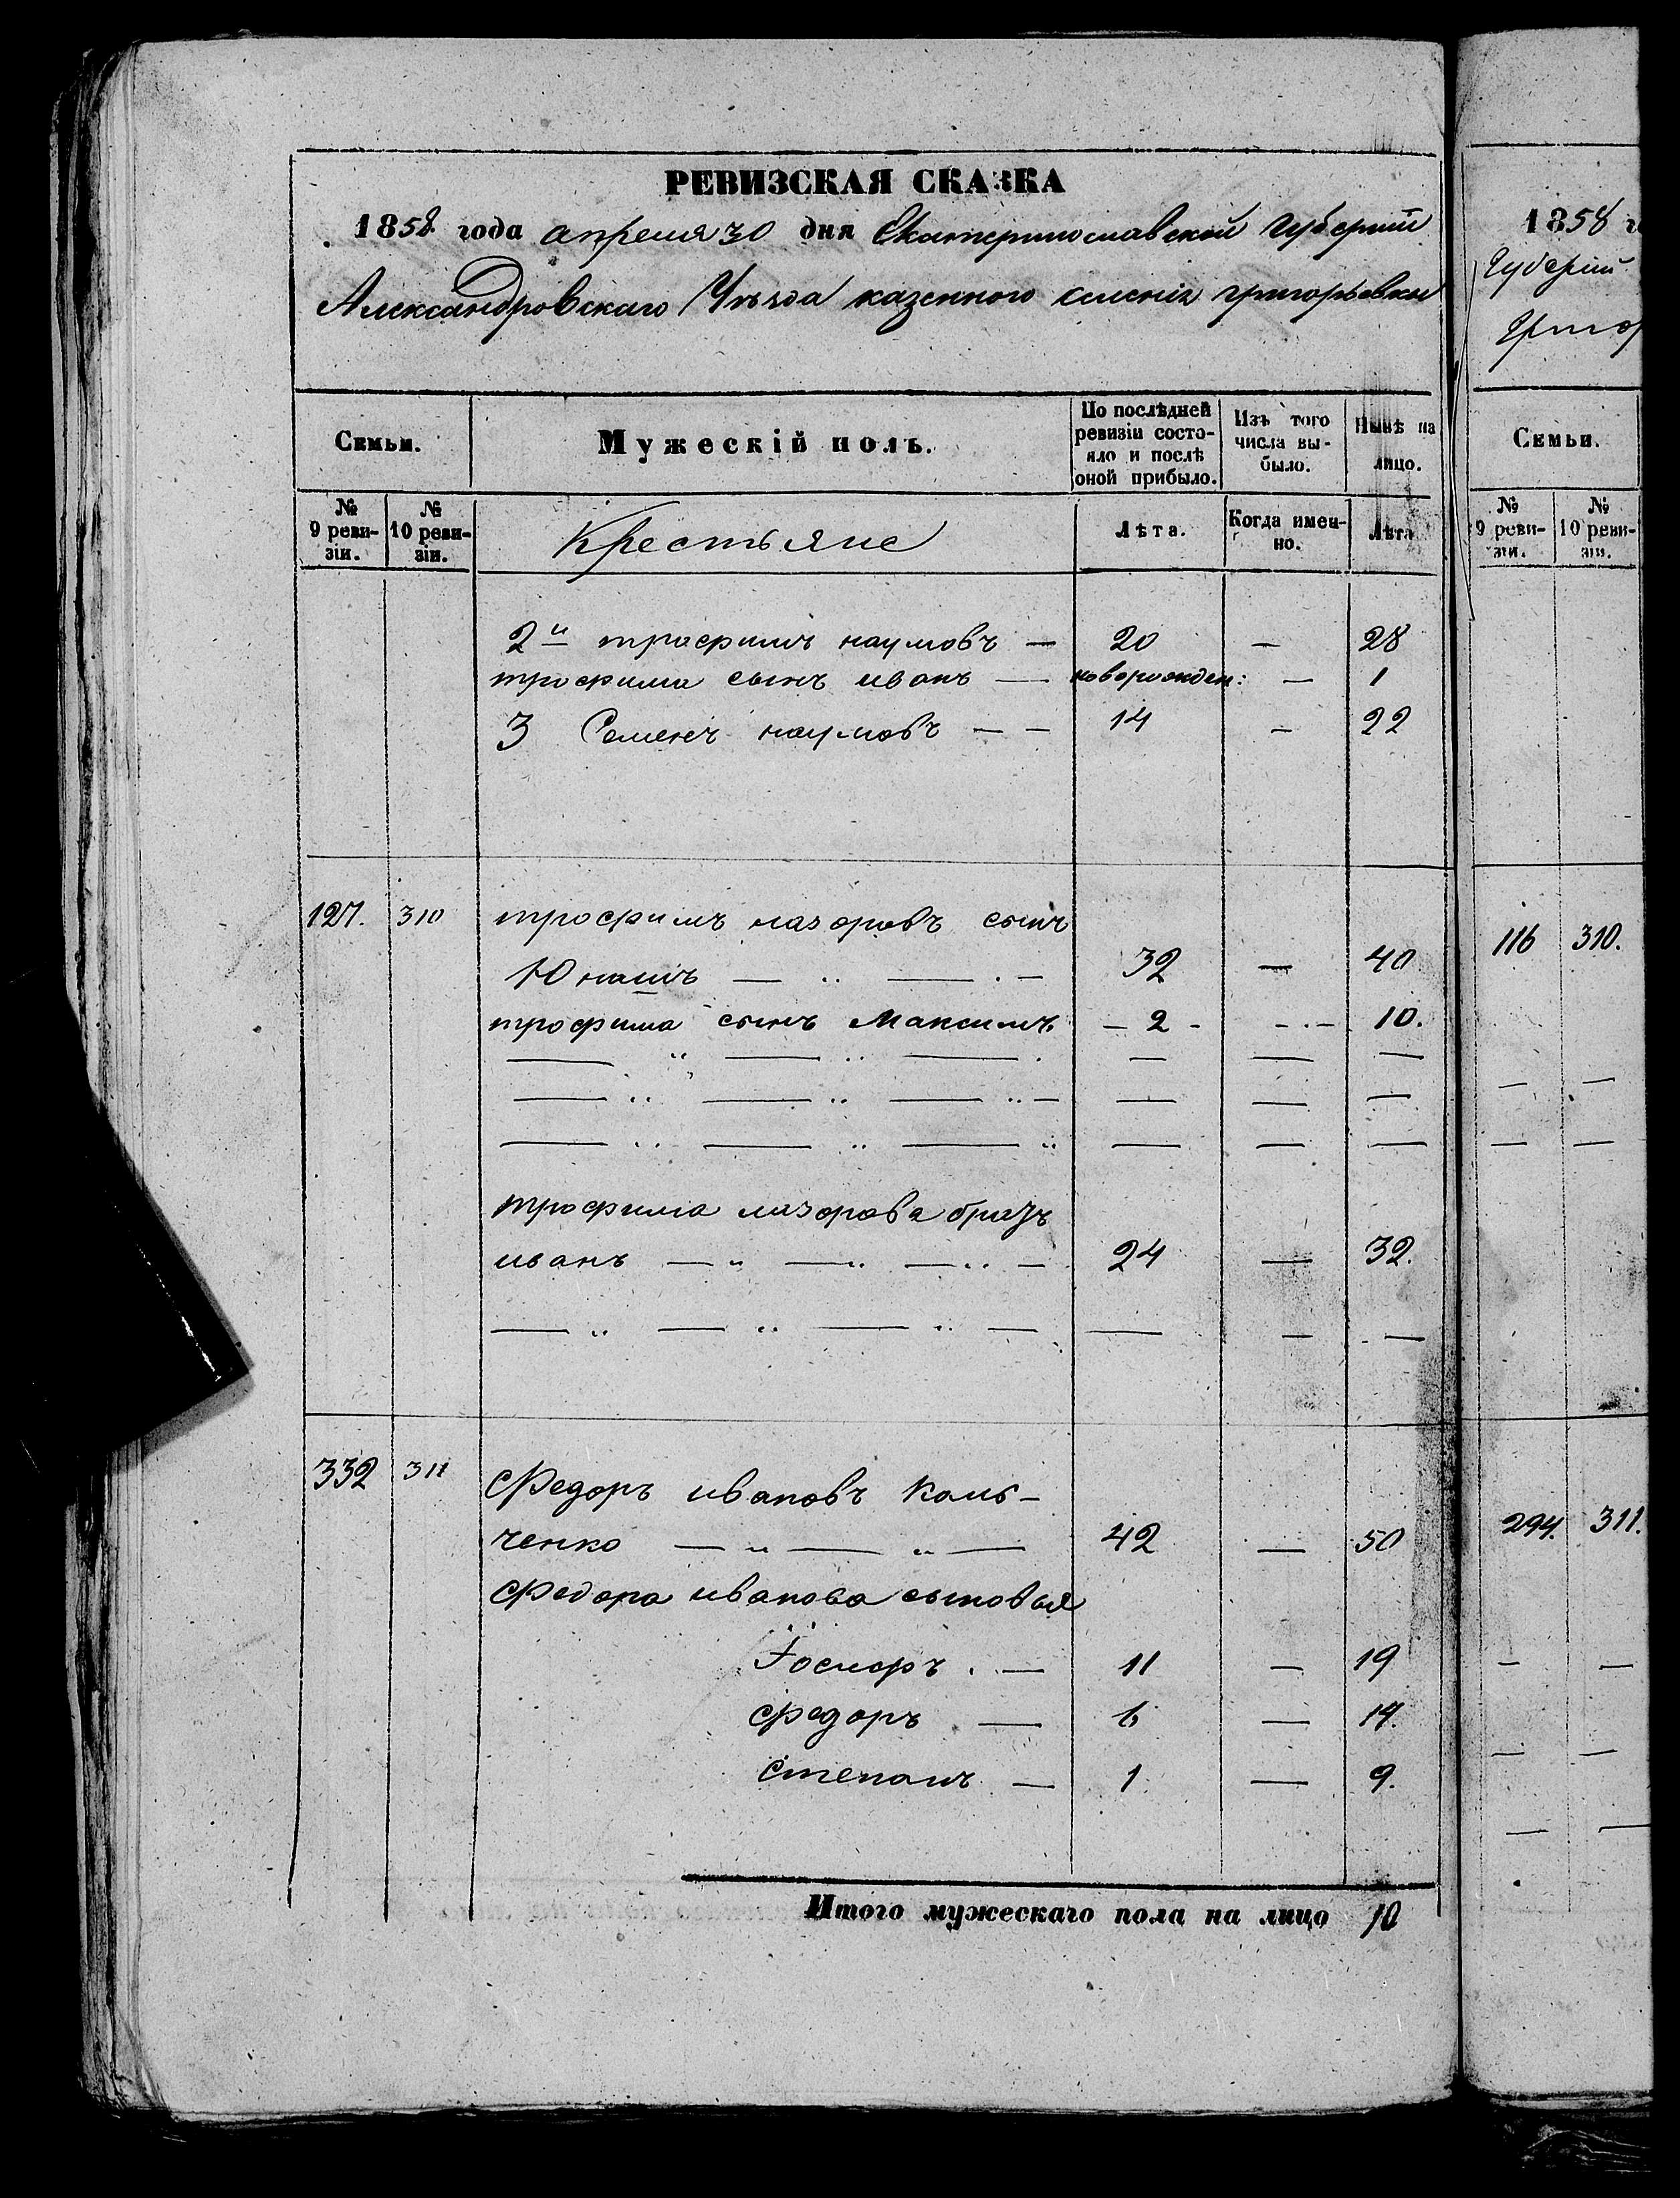 РЕВИЗСКАЯ СКАЗКА
1858 года апреля 30 дня Екатеринославской губерніи
Александровскаго Уѣзда казенного селенія григорьевки
Семьи.
Мужескій полъ.
По послѣдней ревизіи состояло и послѣ оной прибыло.
Изъ того числа выбыло.
Нынѣ на лицо.
№ 9 ревизіи.
№ 10 ревизіи.
Крестьяне
Лѣта.
Когда именно.
Лѣта
2й трофимъ наумовъ — 20 — 28
трофима сынъ иванъ — новорожден: — 1
3 Семенъ наумовъ — — 14 — 22
127. 310 трофимъ лазоровъ сынъ
Юнашъ — 32 — 40
трофима сынъ Максимъ — 2 - — 10.
трофима лазорова братъ
иванъ — 24 — 32.
332 311 Федоръ ивановъ Коль-
ченко — 42 — 50
Федора иванова сыновья
Федоръ — 6 — 14.
Степанъ — 1 — 9.
Итого мужескаго пола на лицо 10
1858 г
Губерніи
Григор
Семьи.
№ 9 ревизіи.
№ 10 ревизіи.
116 310.
294. 311.